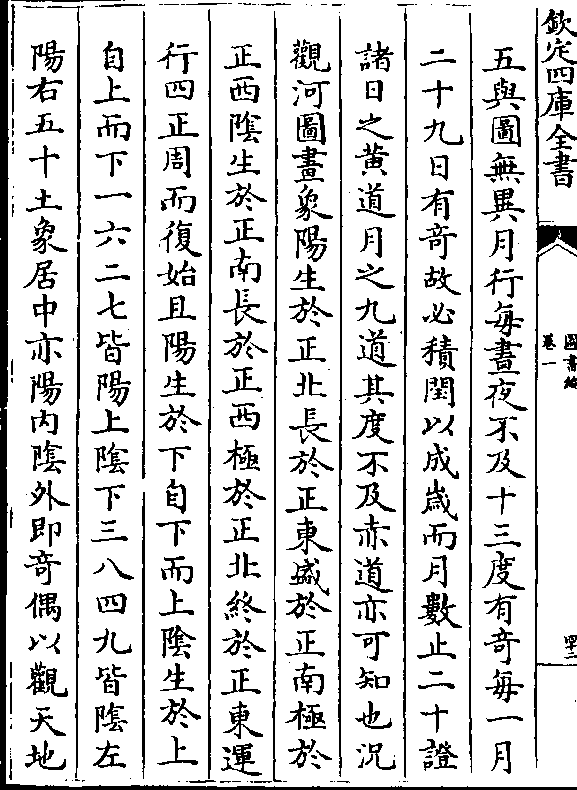 欽定四庫全書
圖書編
卷一
五與圖無異月行每晝夜不及十三度有奇每一月
二十九日有奇故必積閏以成歲而月數止二十證
諸日之黄道月之九道其度不及赤道亦可知也況
觀河圖畫象陽生於正北長於正東盛於正南極於
正西陰生於正南長於正西極於正北終於正東運
行四正周而復始且陽生於下自下而上陰生於上
自上而下一六二七皆陽上陰下三八四九皆陰左
陽右五十土象居中亦陽内陰外即奇偶以觀天地